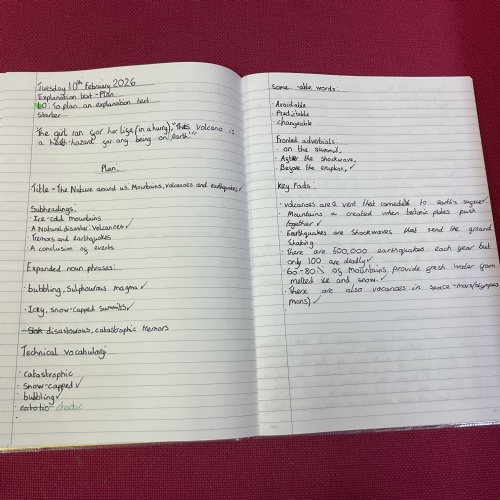 Tuesday 10th February 2026
Explanation text - Plan
LO: To plan an explanation text
Starter
The girl ran for her life (in a hurry), "This volcano is
a health-hazard for any being on earth!"
Plan
Title - The Nature around us: Mountains, volcanoes and earthquakes ✓
Subheadings:
· Ice-cold mountains
· A Natural disaster: Volcanoes ✓
· Tremors and earthquakes
· A conclusion of events
Expanded noun phrases:
· bubbling, Sulphurous magma ✓
· Icey, snow-capped summits ✓
· disastourous, catastrophic tremors
Technical vocabulary:
· catastrophic
· snow-capped ✓
· bubbling ✓
· catotic - chaotic
Some -able words:
· Avoidable
· Predictable
· changeable
Fronted adverbials:
· on the summit,
· After the shockwave,
· Before the eruption, ✓
Key Facts:
· volcanoes are a vent that connects to earth's surface ✓
· Mountains a created when tectonic plates push
together ✓
· Earthquakes are shockwaves that send the ground
shaking.
· There are 500,000 earthquakes each year but
only 100 are deadly ✓
· 60-80% of mountains, provide fresh water from
melted ice and snow. ✓
· There are also vocanoes in space - mars (olympus
mons) ✓